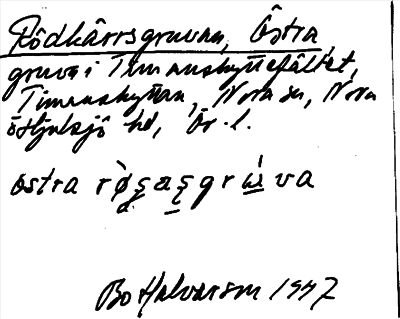 Rödkärrsgruvan, Östra,
gruva i Timanshyttefältet,
Timanshyttan, Nora sn, Nora
o Hjulsjö hd, Ör. l.
östra
Bo Halvarson 1947